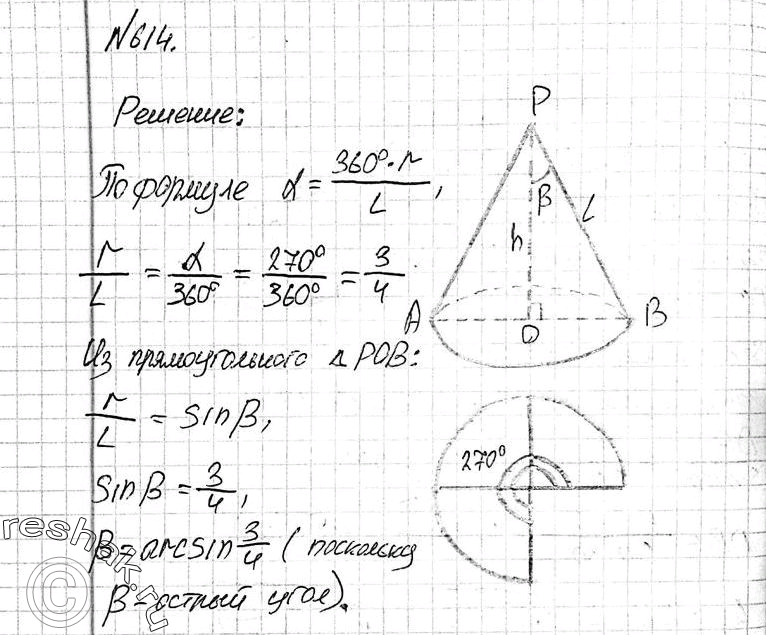 N614.
Решение:
По формуле α = 360° · r / L,
r / L = α / 360° = 270° / 360° = 3 / 4
Из прямоугольного Δ POB:
r / L = sinβ,
sinβ = 3 / 4,
β = arcsin 3/4 ( поскольку
β - острый угол).
P
β
L
h
A
O
B
270°
reshak.ru
©